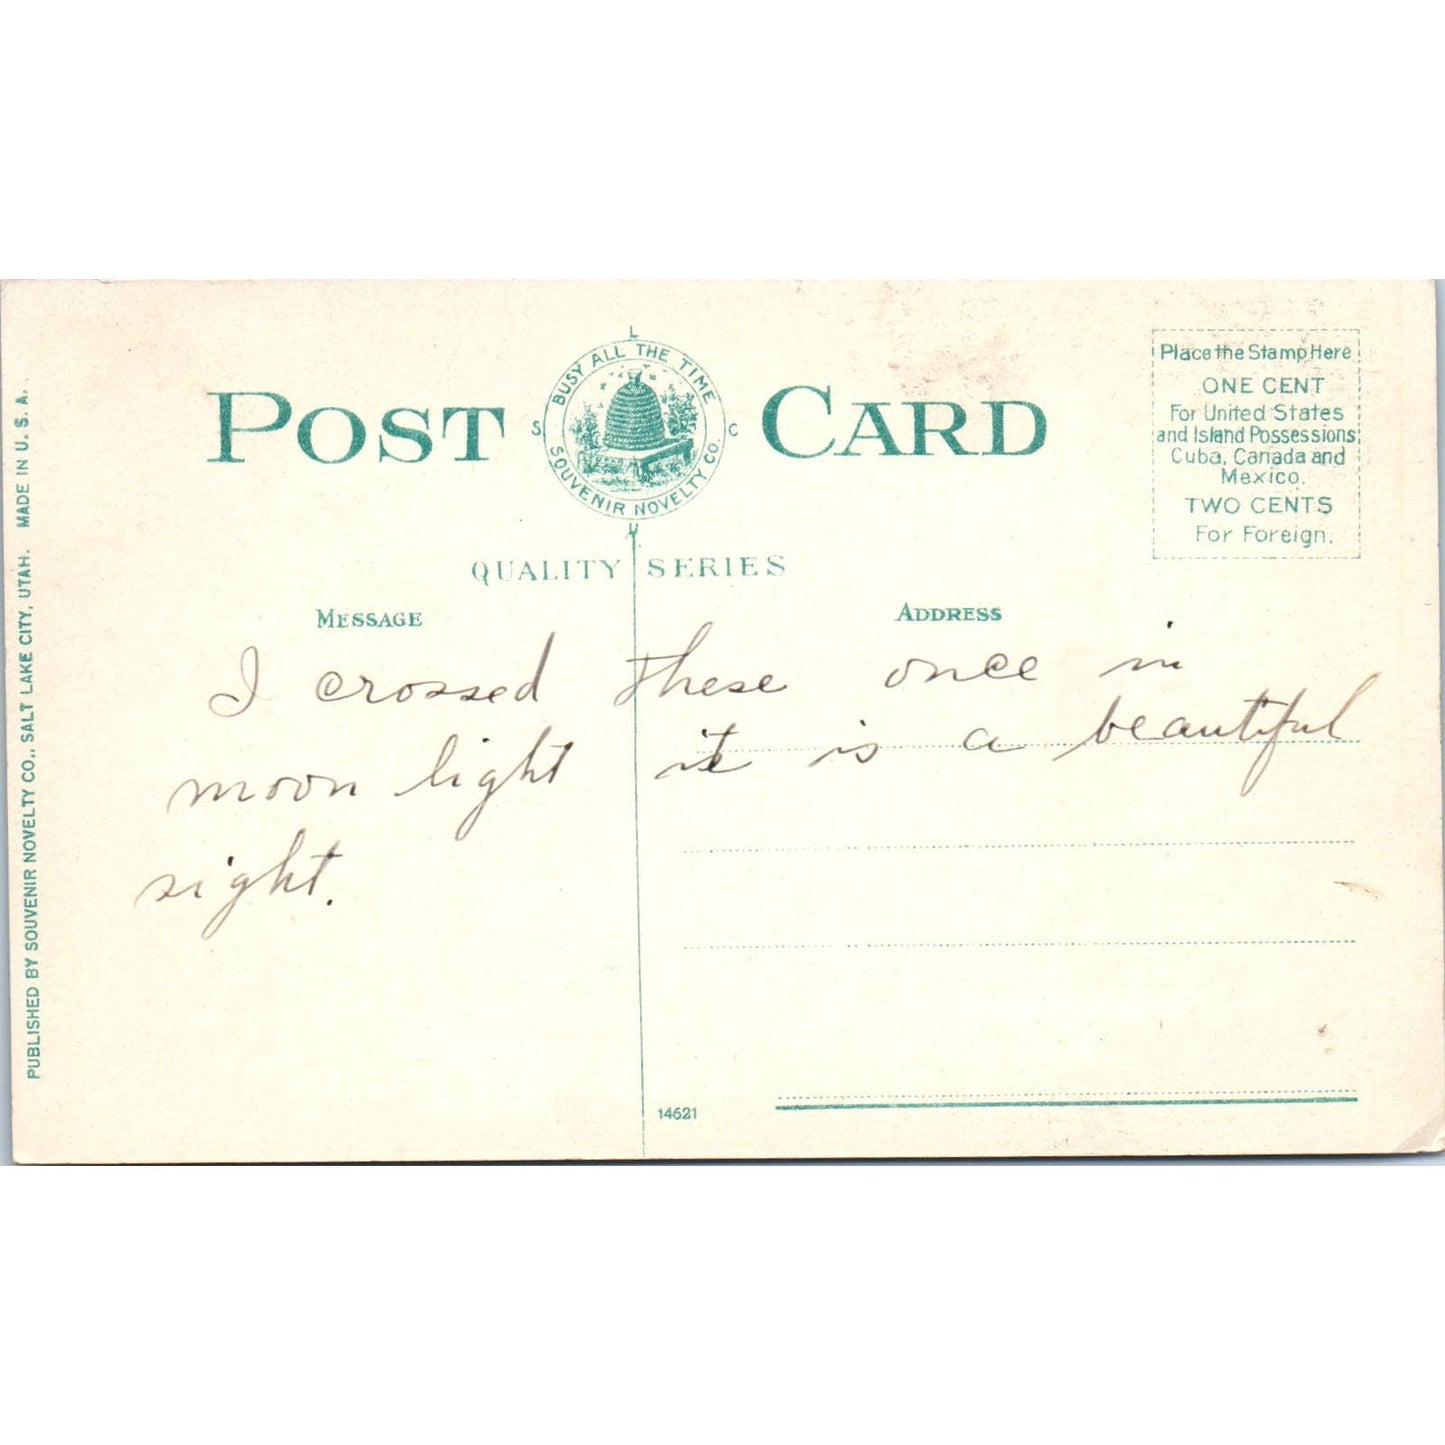 PUBLISHED BY SOUVENIR NOVELTY CO., SALT LAKE CITY, UTAH. MADE IN U. S. A.
POST CARD
BUSY ALL THE TIME
SOUVENIR NOVELTY CO.
S L C U
Place the Stamp Here
ONE CENT
For United States
and Island Possessions,
Cuba, Canada and
Mexico.
TWO CENTS
For Foreign.
QUALITY SERIES
MESSAGE
ADDRESS
I crossed these once in
moon light it is a beautiful
sight.
14621